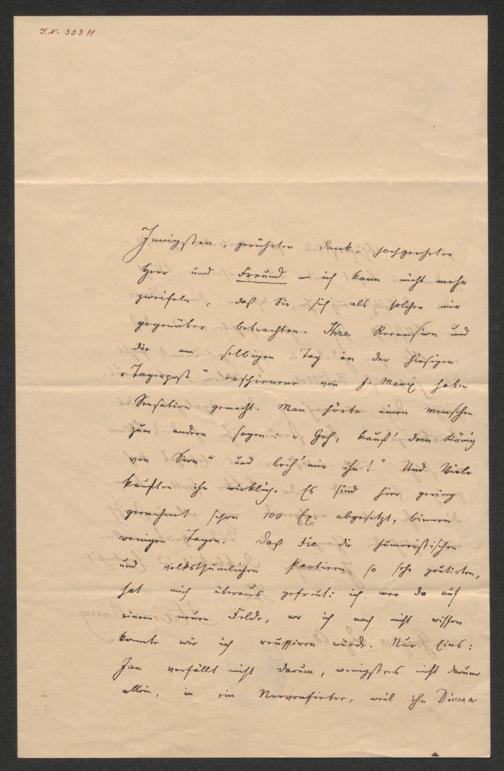 I.N. 30311
Innigsten, gerührten Dank, hochgeehrter
Herr und Freund — ich kann nicht mehr
zweifeln, daß Sie sich als solchen mir
gegenüber betrachten. Ihre Recension und
die am selbigen Tag in der hiesigen
"Tagespost" erschienene von J. Marx haben
Sensation gemacht. Man hörte einen Menschen
zum andern sagen: "Geh, kauf' den König
von Sion" und leih' mir ihn!" Und Viele
kauften ihn wirklich. Es sind hier gering
gerechnet schon 100 Ex. abgesetzt, binnen
wenigen Tagen. Daß Sie die humoristischen
und volksthümlichen Partieen so sehr goutirten,
hat mich überaus gefreut: ich war da auf
einem neuen Felde, wo ich noch nicht wissen
konnte wie ich reussiren würde. Nur Eins:
Jan verfällt nicht darum, wenigstens nicht darum
allein, in ein Nervenfieber, weil ihn Divara